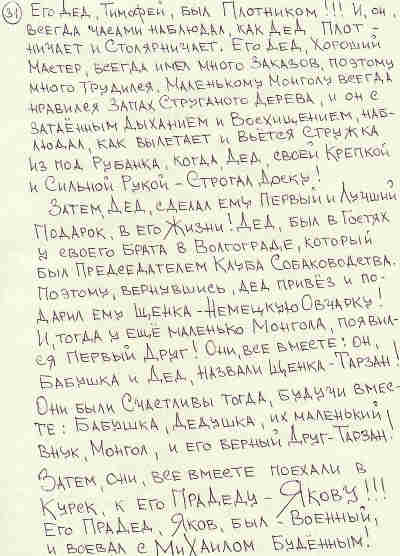 31 Его Дед, Тимофей, был Плотником!!! И, он,
всегда часами наблюдал, как Дед Плот-
ничает и Столярничает. Его Дед, Хороший
Мастер, всегда имел много Заказов, поэтому
много Трудился. Маленькому Монголу всегда
нравился Запах Струганого Дерева, и он с
Затаённым Дыханием и Восхищением, наб-
людал, как вылетает и вьётся Стружка
из под Рубанка, когда Дед, своей Крепкой
и Сильной Рукой - Строгал Доску!
Затем, Дед, сделал ему Первый и Лучший
Подарок, в его Жизни! Дед, был в Гостях
у своего Брата в Волгограде, который
был Председателем Клуба Собаководства.
Поэтому, вернувшись, Дед привёз и по-
дарил ему Щенка - Немецкую Овчарку!
И, тогда у ещё маленько Монгола, появил-
ся Первый Друг! Они, все вместе: он,
Бабушка и Дед, назвали Щенка - Тарзан!
Они были Счастливы тогда, будучи вмес-
те: Бабушка, Дедушка, их маленький
Внук, Монгол, и его верный Друг - Тарзан!
Затем, они, все вместе поехали в
Курек, к его ПраДеду - Якову!!!
Его ПраДед, Яков, был - Военный,
и воевал с Михаилом Будённым!